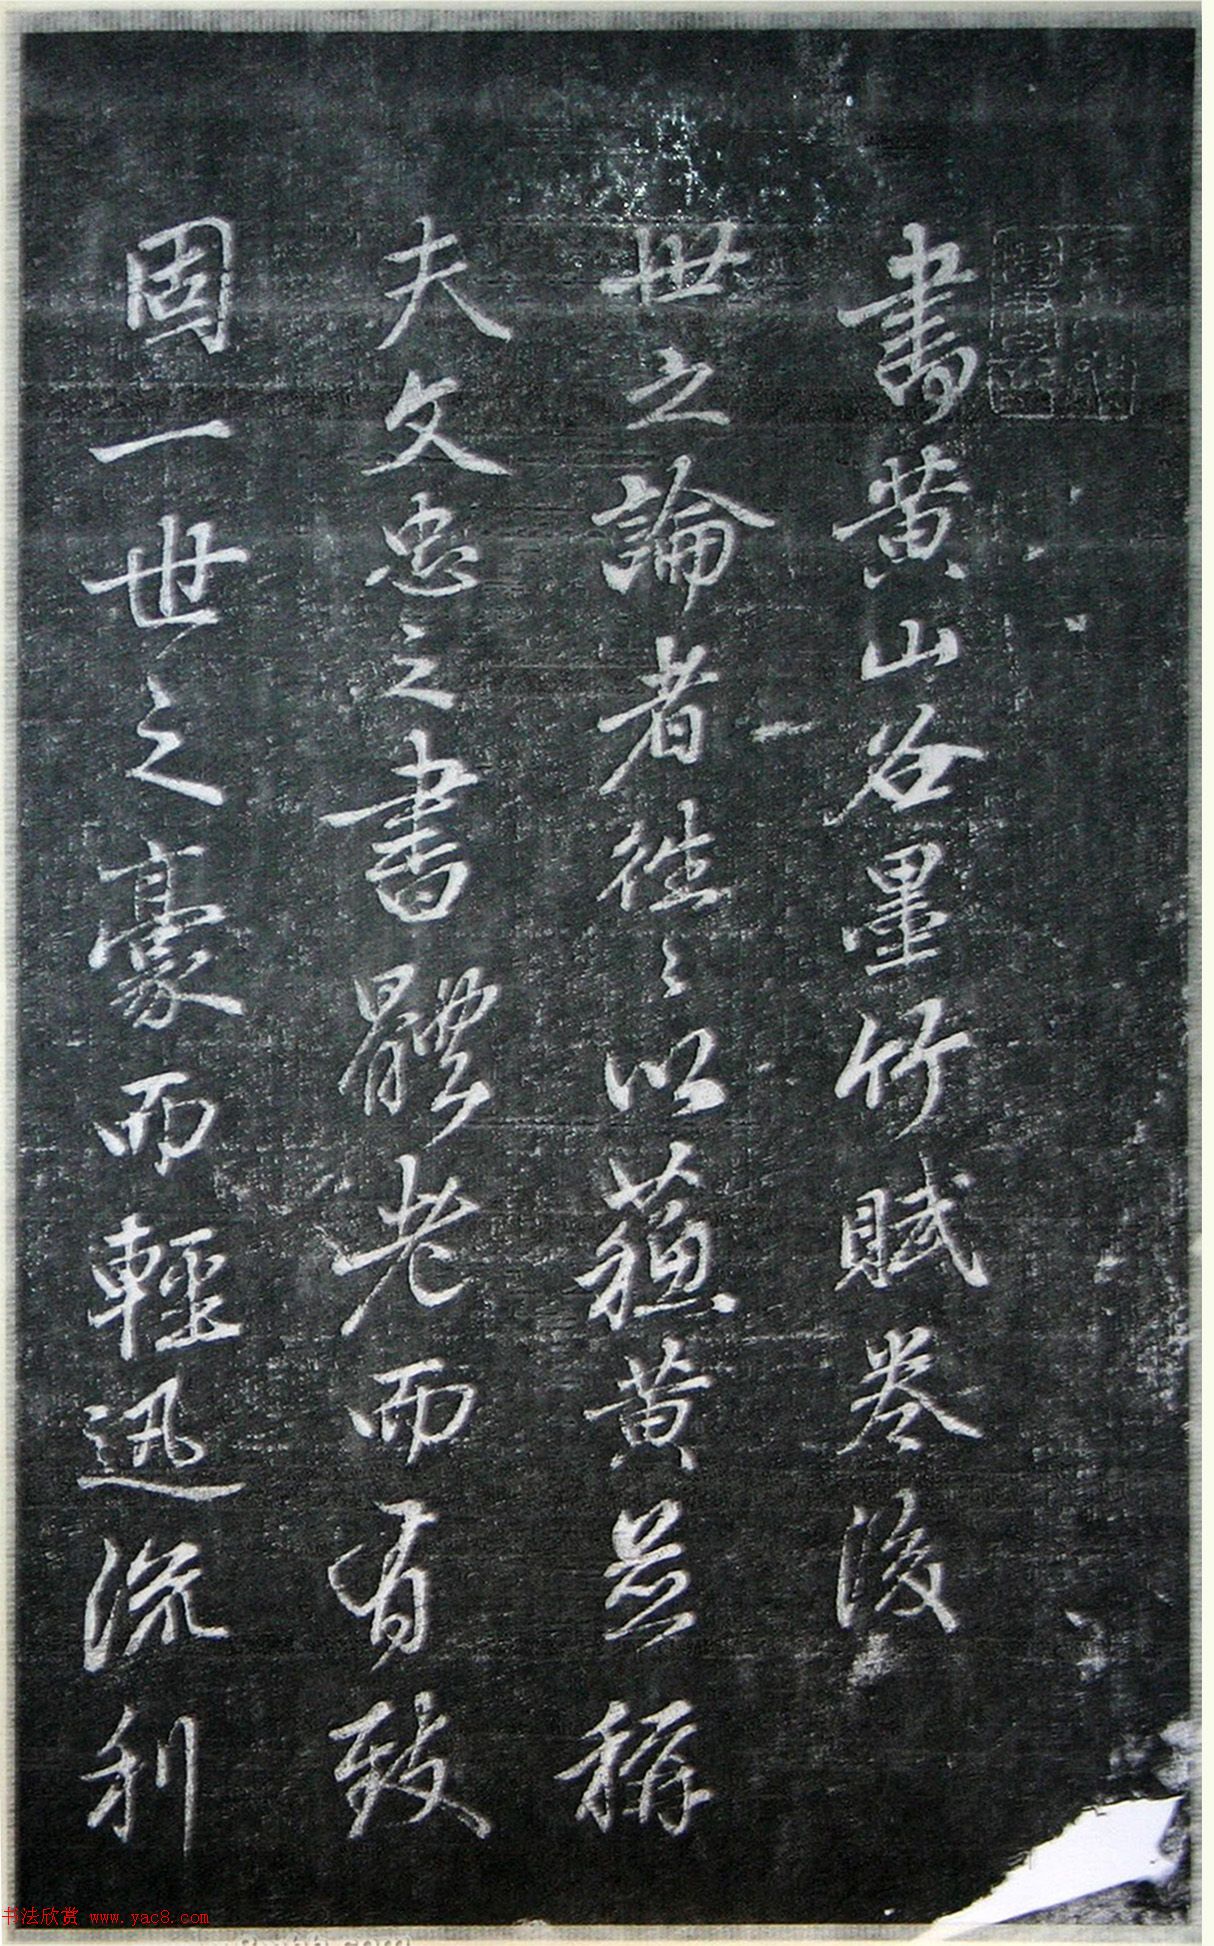 書黄山谷墨竹賦卷後
世之論者往々以蘇黄並稱
夫文忠之書體老而有致
固一世之豪而輕迅流利
书法欣赏 www.yac8.com